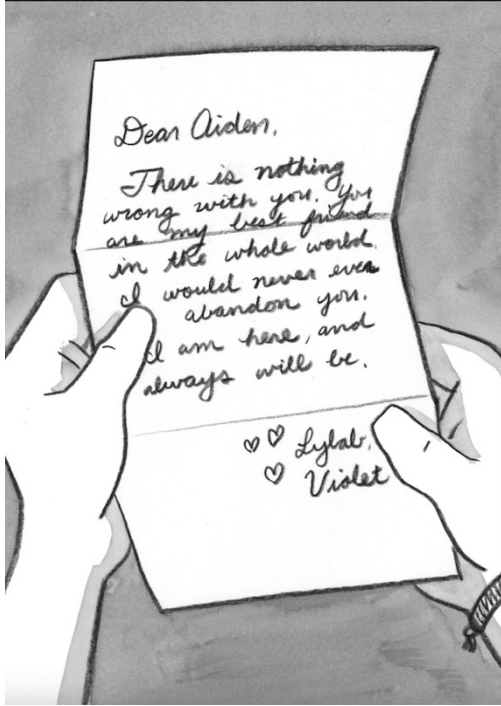 Dear Aiden,
There is nothing
wrong with you. You
are my best friend
in the whole world.
I would never ever
abandon you.
I am here, and
always will be.
♡♡ Lylab,
♡ Violet